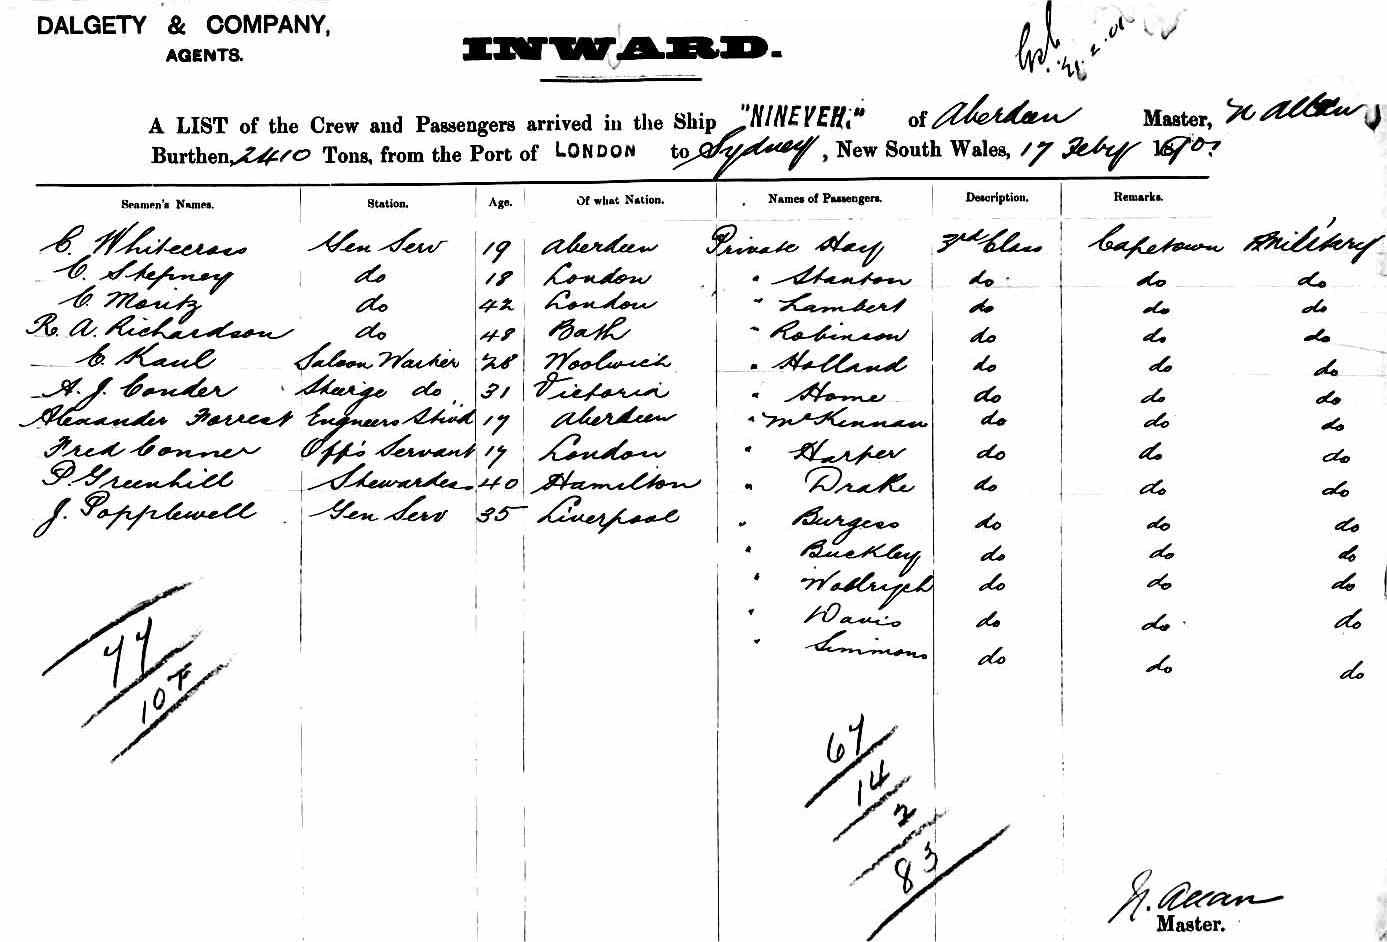 DALGETY & COMPANY,
AGENTS.
INWARD.
21.2.01
A LIST of the Crew and Passengers arrived in the Ship "NINEVEH," of Aberdeen Master, N Allan
Burthen, 2410 Tons, from the Port of LONDON to Sydney, New South Wales, 17 Feby 1901
Seamen's Names. Station. Age. Of what Nation. Names of Passengers. Description. Remarks.
C. Whitecross Gen Serv 19 Aberdeen Private Hay 3rd Class Capetown Military
C. Stepney do 18 London " Stanton do do do
C. Moritz do 42 London " Lambert do do do
R. A. Richardson do 48 Bath " Robinson do do do
C. Kaul Saloon Washer 28 Woolwich " Holland do do do
A. J. Conder Steerge do 31 Victoria " Home do do do
Alexander Forrest Engneers Stwd 17 Aberdeen " McKinnan do do do
Fred Conner Off's Servant 17 London " Harper do do do
P. Greenhill Stewardess 40 Hamilton " Drake do do do
J. Popplewell Gen Serv 35 Liverpool " Burgess do do do
" Buckley do do do
" do do do
" Davis do do do
" Simmons do do do
77
107
67
14
2
83
N. Allan
Master.